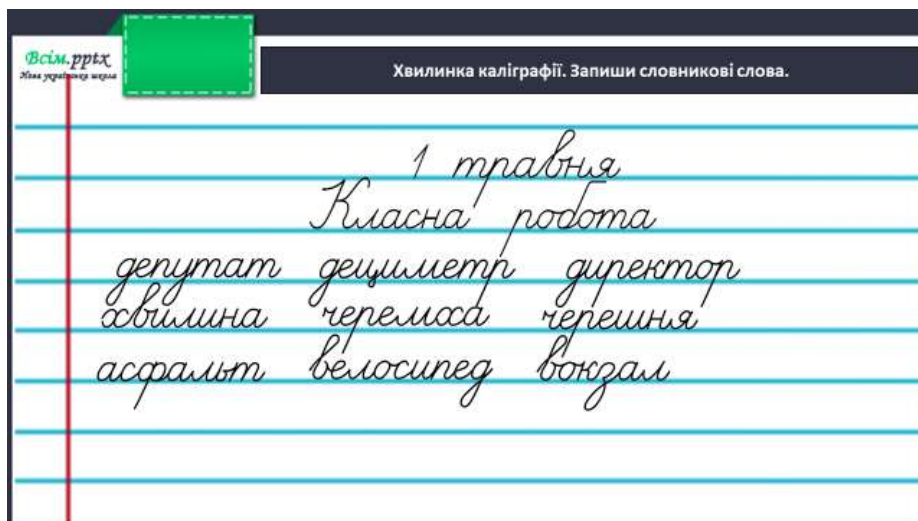 Всім.pptx
Нова українська школа
Хвилинка каліграфії. Запиши словникові слова.
1 травня
Класна робота
депутат дециметр директор
хвилина черемха черешня
асфальт велосипед вокзал